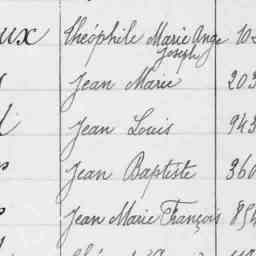 ux Théophile Marie Ange
Joseph
Jean Marie 203
Jean Louis 943
Jean Baptiste 360
Jean Marie François